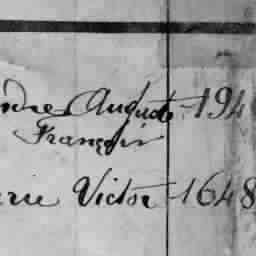 ndre Auguste 194
François
erie Victor 1648